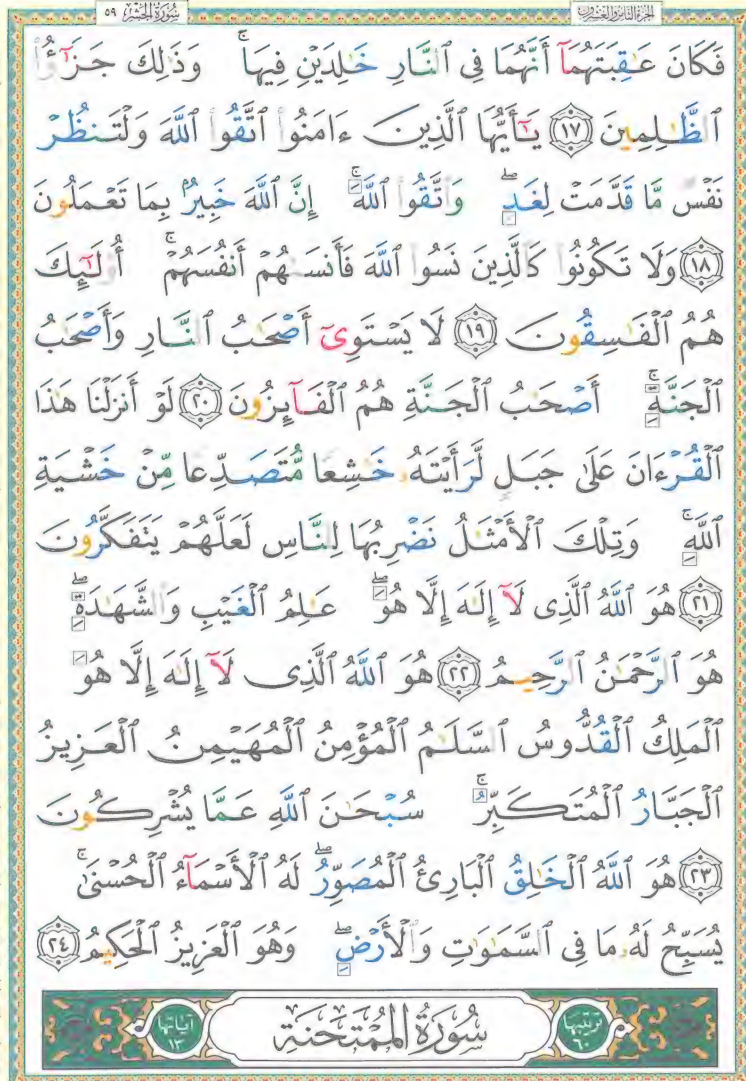 الجزء الثامن والعشرون سُورَةُ الحَشْرِ ٥٩
فَكَانَ عَٰقِبَتَهُمَآ أَنَّهُمَا فِى ٱلنَّارِ خَٰلِدَيْنِ فِيهَا ۚ وَذَٰلِكَ جَزَٰٓؤُا۟
ٱلظَّٰلِمِينَ ١٧ يَٰٓأَيُّهَا ٱلَّذِينَ ءَامَنُوا۟ ٱتَّقُوا۟ ٱللَّهَ وَلْتَنظُرْ
نَفْسٌ مَّا قَدَّمَتْ لِغَدٍ ۖ وَٱتَّقُوا۟ ٱللَّهَ ۚ إِنَّ ٱللَّهَ خَبِيرٌۢ بِمَا تَعْمَلُونَ
١٨ وَلَا تَكُونُوا۟ كَٱلَّذِينَ نَسُوا۟ ٱللَّهَ فَأَنسَىٰهُمْ أَنفُسَهُمْ ۚ أُو۟لَٰٓئِكَ
هُمُ ٱلْفَٰسِقُونَ ١٩ لَا يَسْتَوِىٓ أَصْحَٰبُ ٱلنَّارِ وَأَصْحَٰبُ
ٱلْجَنَّةِ ۚ أَصْحَٰبُ ٱلْجَنَّةِ هُمُ ٱلْفَآئِزُونَ ٢٠ لَوْ أَنزَلْنَا هَٰذَا
ٱلْقُرْءَانَ عَلَىٰ جَبَلٍ لَّرَأَيْتَهُۥ خَٰشِعًا مُّتَصَدِّعًا مِّنْ خَشْيَةِ
ٱللَّهِ ۚ وَتِلْكَ ٱلْأَمْثَٰلُ نَضْرِبُهَا لِلنَّاسِ لَعَلَّهُمْ يَتَفَكَّرُونَ
٢١ هُوَ ٱللَّهُ ٱلَّذِى لَآ إِلَٰهَ إِلَّا هُوَ ۖ عَٰلِمُ ٱلْغَيْبِ وَٱلشَّهَٰدَةِ ۖ
هُوَ ٱلرَّحْمَٰنُ ٱلرَّحِيمُ ٢٢ هُوَ ٱللَّهُ ٱلَّذِى لَآ إِلَٰهَ إِلَّا هُوَ
ٱلْمَلِكُ ٱلْقُدُّوسُ ٱلسَّلَٰمُ ٱلْمُؤْمِنُ ٱلْمُهَيْمِنُ ٱلْعَزِيزُ
ٱلْجَبَّارُ ٱلْمُتَكَبِّرُ ۚ سُبْحَٰنَ ٱللَّهِ عَمَّا يُشْرِكُونَ
٢٣ هُوَ ٱللَّهُ ٱلْخَٰلِقُ ٱلْبَارِئُ ٱلْمُصَوِّرُ ۖ لَهُ ٱلْأَسْمَآءُ ٱلْحُسْنَىٰ ۚ
يُسَبِّحُ لَهُۥ مَا فِى ٱلسَّمَٰوَٰتِ وَٱلْأَرْضِ ۖ وَهُوَ ٱلْعَزِيزُ ٱلْحَكِيمُ ٢٤
ترتيبها ٦٠ سُورَةُ المُمْتَحنَةِ آياتها ١٣